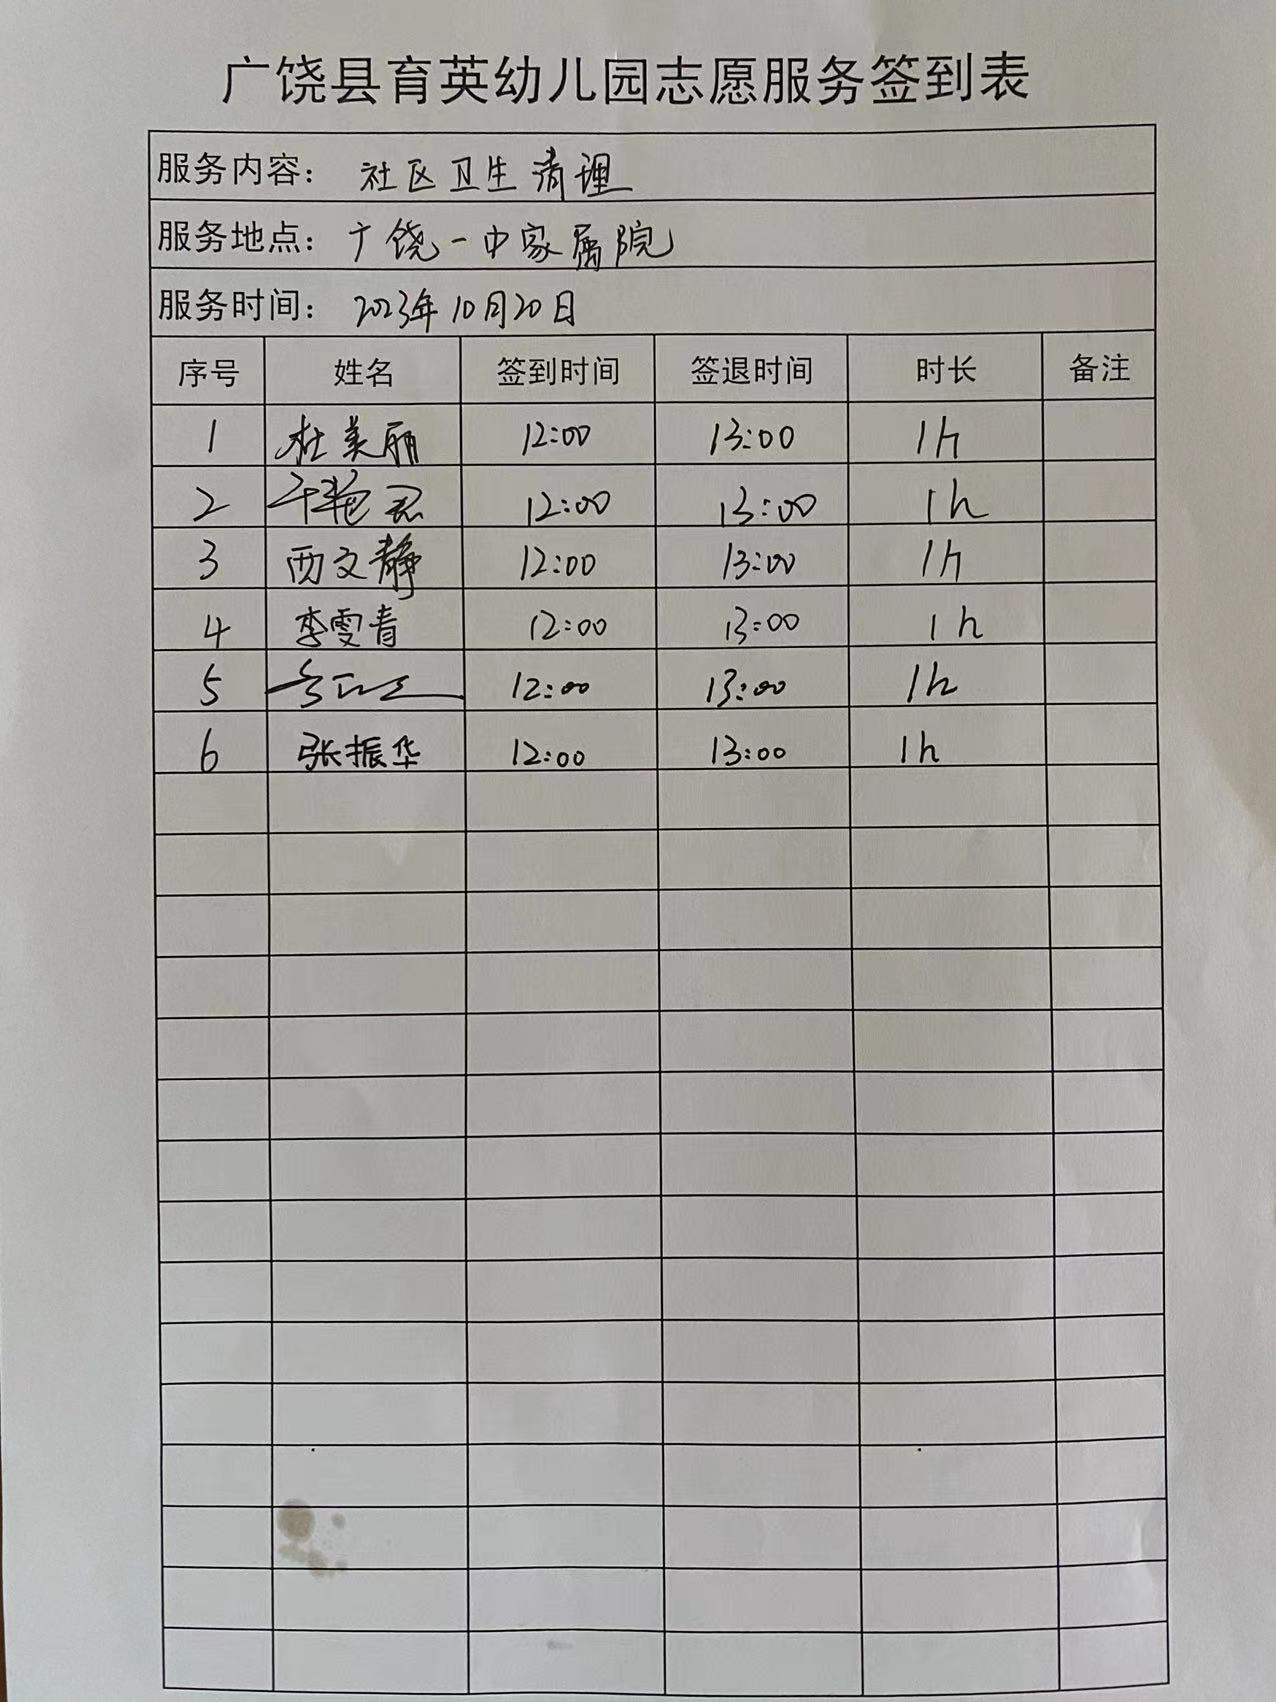 广饶县育英幼儿园志愿服务签到表
服务内容： 社区卫生清理
服务地点： 广饶一中家属院
服务时间： 2023年10月20日
序号 姓名 签到时间 签退时间 时长 备注
1 杜美丽 12:00 13:00 1h
2 12:00 13:00 1h
3 西文静 12:00 13:00 1h
4 李雯青 12:00 13:00 1h
5 12:00 13:00 1h
6 张振华 12:00 13:00 1h